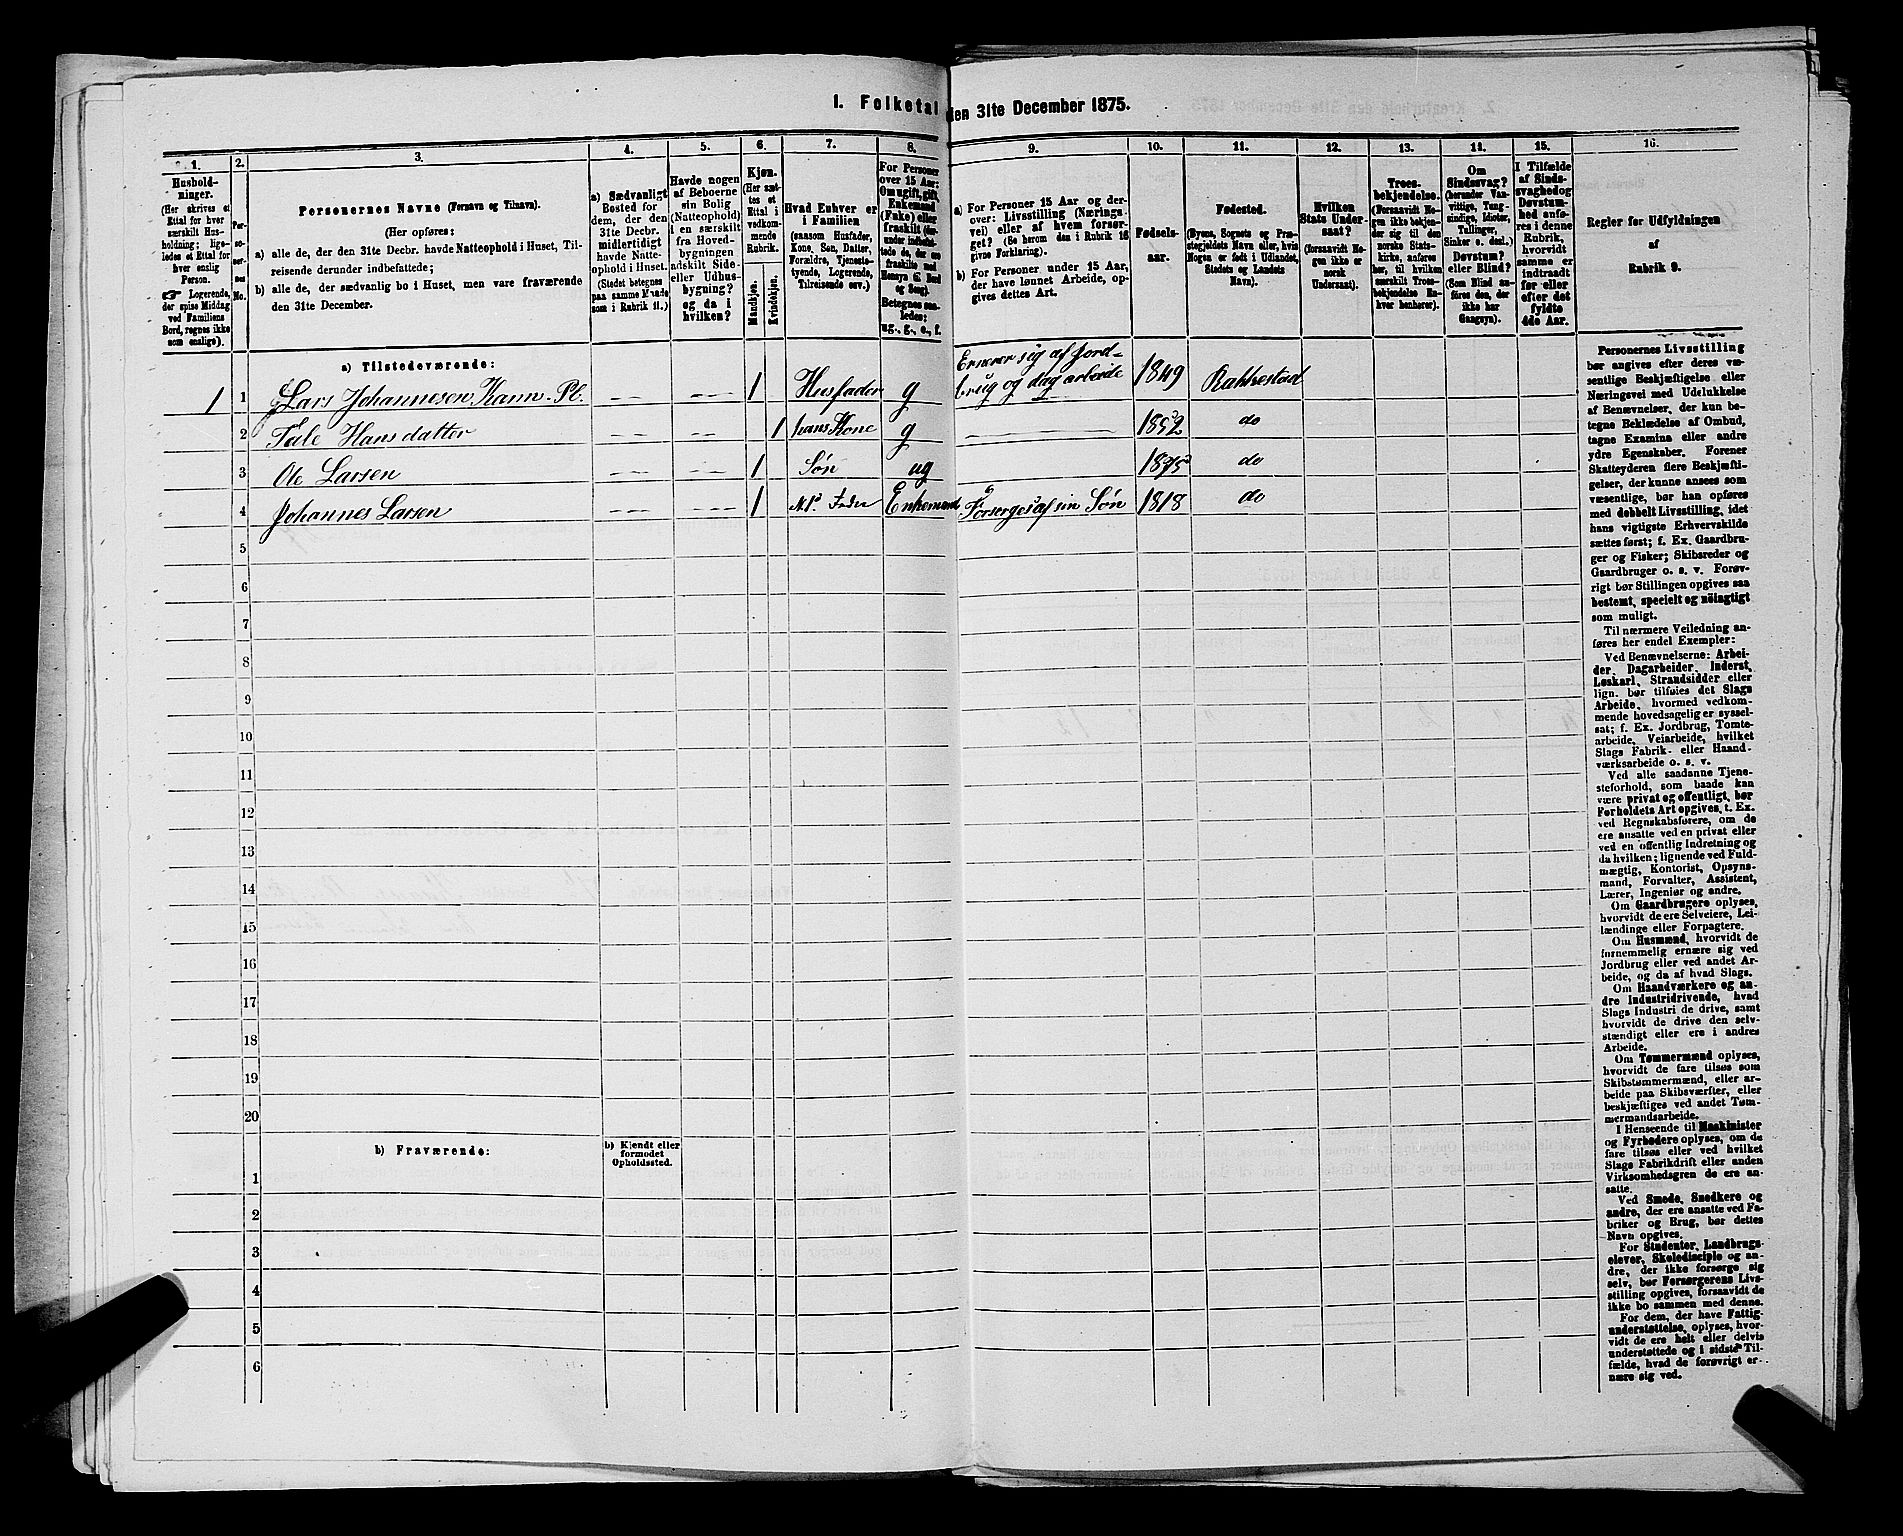 1. Folketal den 31te December 1875.
1.
2.
3.
4.
5.
6.
7.
8.
9.
10.
11.
12.
13.
14.
15.
16.
Husholdninger.
(Her skrives et
Ettal for hver
særskilt Husholdning; ligeledes
et Ettal for
hver enslig
Person.
☞ Logerende,
der spise Middag
ved Familiens
Bord, regnes ikke
som enslige).
Personernes No.
Personernes Navne (Fornavn og Tilnavn).
(Her opføres:
a) alle de, der den 31te Decbr. havde Natteophold i Huset, Tilreisende
derunder indbefattede;
b) alle de, der sædvanlig bo i Huset, men vare fraværende
den 31te December.
a) Sædvanligt
Bosted for
dem, der den
31te Decbr.
midlertidigt
havde Natteophold
i Huset.
(Stedet betegnes
paa samme Maade
som i Rubrik 11.)
Havde nogen
af Beboerne
sin Bolig
(Natteophold)
i en særskilt
fra Hovedbygningen
adskilt Side-
eller Udhusbygning?
og da i
hvilken?
Kjøn.
(Her sættes
et
Ettal i
vedkommende
Rubrik.
Mandkjøn.
Kvindekjøn.
Hvad Enhver er
i Familien
(saasom Husfader,
Kone, Søn, Datter,
Forældre, Tjenestetyende,
Logerende,
Tilreisende osv.)
For Personer
over 15 Aar:
Om ugift, gift,
Enkemand
(Enke) eller
fraskilt (derunder
indbefattede
de, der ere
fraskilte med
Hensyn til Bord
og Seng).
Betegnes saaledes:
ug., g., e., f.
a) For Personer 15 Aar og derover:
Livsstilling (Næringsvei)
eller af hvem forsørget?
(Se herom den i Rubrik 16
givne Forklaring).
b) For Personer under 15 Aar,
der have lønnet Arbeide, opgives
dettes Art.
Fødselsaar.
Fødested.
(Byens, Sognets og Præstegjeldets
Navn eller, hvis
Nogen er født i Udlandet,
Stedets og Landets
Navn).
Hvilken
Stats Undersaat?
(forsaavidt Nogen
ikke er
norsk
Undersaat).
Troesbekjendelse.
(Forsaavidt Nogen
ikke bekjender
sig til den
norske Statskirke,
anføres
her, til hvilken
særskilt Troesbekjendelse
Enhver
henhører).
Om
Sindssvag?
(herunder Vanvittige,
Tungsindige,
Idioter,
Tullinger,
Sinker o. desl.)
Døvstum?
eller Blind?
(Som Blind anføres
den, der
ikke har
Gangsyn).
I Tilfælde
af Sindssvaghed
og
Døvstumhed
anføres
i denne
Rubrik,
hvorvidt
samme er
indtraadt
før eller
efter det
fyldte
4de Aar.
Regler for Udfyldningen
af
Rubrik 9.
a) Tilstedeværende:
1 1 Lars Johannesen Kann. Pl. 1 Husfader g Ernerer sig af jordbrug og dag arbeide 1849 Rakkestad
2 Tale Hansdatter 1 hans Kone g 1852 do
3 Ole Larsen 1 Søn ug 1875 do
4 Johannes Larsen 1 Enkemand Forsørges af sin Søn 1818 do
5
6
7
8
9
10
11
12
13
14
15
16
17
18
19
20
b) Fraværende:
b) Kjendt eller
formodet
Opholdssted.
1
2
3
4
5
6
Personernes Livsstilling
bør angives efter deres væsentlige
Beskjæftigelse eller
Næringsvei med Udelukkelse
af Benævnelser, der kun betegne
Beklædelse af Ombud,
tagne Examina eller andre
ydre Egenskaber. Forener
Skatteyderen flere Beskjæftigelser,
der kunne ansees som
væsentlige, bør han opføres
med dobbelt Livsstilling, idet
hans vigtigste Erhvervskilde
sættes først; f. Ex. Gaardbruger
og Fisker; Skibsreder og
Gaardbruger o. s. v. Forøvrigt
bør Stillingen opgives saa
bestemt, specielt og nöiagtigt
som muligt.
Til nærmere Veiledning anføres
her endel Exempler:
Ved Benævnelserne: Arbeider,
Dagarbeider, Inderst,
Løskarl, Strandsidder eller
lign. bør tilføies det Slags
Arbeide, hvormed vedkommende
hovedsagelig er sysselsat;
f. Ex. Jordbrug, Tomtearbeide,
Veiarbeide, hvilket
Slags Fabrik- eller Haandværksarbeide
o. s. v.
Ved alle saadanne Tjenesteforhold,
som baade kan
være privat og offentligt, bør
Forholdets Art opgives, t. Ex.
ved Regnskabsførere, om de
ere ansatte ved en privat eller
ved en offentlig Indretning og
da hvilken; lignende ved Fuldmægtig,
Kontorist, Opsynsmand,
Forvalter, Assistent,
Lærer, Ingeniør og andre.
Om Gaardbrugere oplyses,
hvorvidt de ere Selveiere, Leilændinge
eller Forpagtere.
Om Husmænd, hvorvidt de
fornemmelig ernære sig ved
Jordbrug eller ved andet Arbeide,
og da af hvad Slags.
Om Haandværkere og andre
Industridrivende, hvad
Slags Industri de drive, samt
hvorvidt de drive den selvstændigt
eller ere i andres
Arbeide.
Om Tømmermænd oplyses,
hvorvidt de fare tilsøs som
Skibstømmermænd, eller arbeide
paa Skibsværfter, eller
beskjæftiges ved andet Tømmermandsarbeide.
I Henseende til Maskinister
og Fyrbødere oplyses, om de
fare tilsøs eller ved hvilket
Slags Fabrikdrift eller anden
Virksomhedsgren de ere ansatte.
Ved Smede, Snedkere og
andre, der ere ansatte ved Fabriker
og Brug, bør dettes
Navn opgives.
For Studenter, Landbrugselever,
Skoledisciple og andre,
der ikke forsørge sig
selv, bør Forsørgerens Livsstilling
opgives, forsaavidt de
ikke bo sammen med denne.
For dem, der have Fattigunderstøttelse,
oplyses, hvorvidt
de ere helt eller delvis
understøttede og i sidste Tilfælde,
hvad de forøvrigt ernære
sig ved.